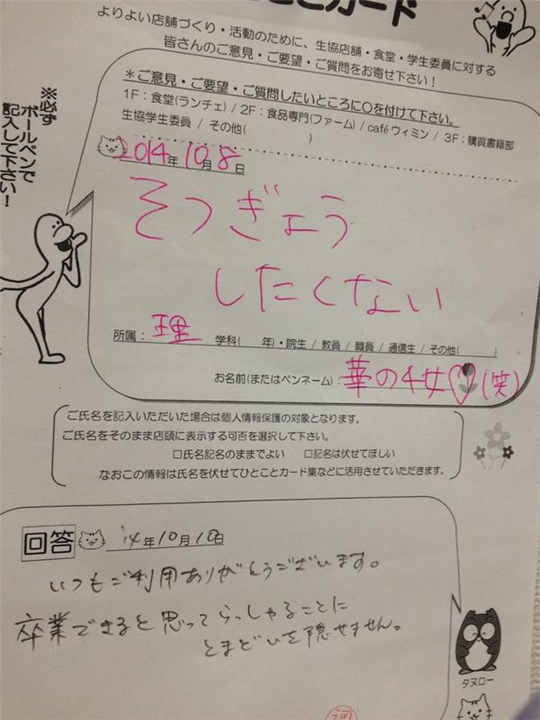 ことカード
よりよい店舗づくり・活動のために、生協店舗・食堂・学生委員に対する
皆さんのご意見・ご要望・ご質問をお寄せ下さい！
※必ず
ボールペンで
記入して下さい！
＊ご意見・ご要望・ご質問したいところに○を付けて下さい。
1F：食堂(ランチェ) / 2F：食品専門(ファーム) / caféウィミン / 3F：購買書籍部
生協学生委員 / その他(　　　)
2014年10月8日
そつぎょう
したくない
所属：理 学科(　年)・院生 / 教員 / 職員 / 通信生 / その他(　　　)
お名前(またはペンネーム)：華の4女♡(笑)
ご氏名を記入いただいた場合は個人情報保護の対象となります。
ご氏名をそのまま店頭に表示する可否を選択して下さい。
□氏名記名のままでよい　□記名は伏せてほしい
なおこの情報は氏名を伏せてひとことカード集などに活用させていただきます。
回答 '14年10月10日
いつもご利用ありがとうございます。
卒業できると思ってらっしゃることに
とまどいを隠せません。
タヌロー
河